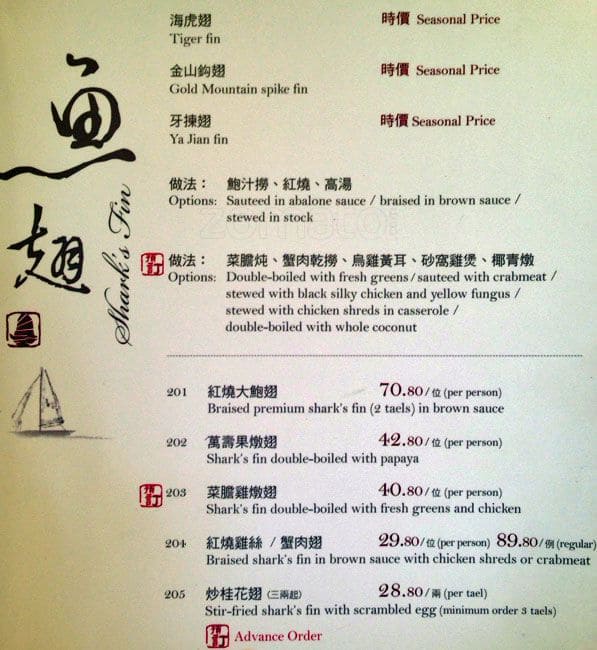 魚翅
Shark's Fin
海虎翅 時價 Seasonal Price
Tiger fin
金山鈎翅 時價 Seasonal Price
Gold Mountain spike fin
牙揀翅 時價 Seasonal Price
Ya Jian fin
做法： 鮑汁撈、紅燒、高湯
Options: Sauteed in abalone sauce / braised in brown sauce /
stewed in stock
預訂 做法： 菜膽炖、蟹肉乾撈、烏雞黃耳、砂窩雞煲、椰青燉
Options: Double-boiled with fresh greens / sauteed with crabmeat /
stewed with black silky chicken and yellow fungus /
stewed with chicken shreds in casserole /
double-boiled with whole coconut
201 紅燒大鮑翅 70.80/位 (per person)
Braised premium shark's fin (2 taels) in brown sauce
202 萬壽果燉翅 42.80/位 (per person)
Shark's fin double-boiled with papaya
預訂 203 菜膽雞燉翅 40.80/位 (per person)
Shark's fin double-boiled with fresh greens and chicken
204 紅燒雞絲 / 蟹肉翅 29.80/位 (per person) 89.80/例 (regular)
Braised shark's fin in brown sauce with chicken shreds or crabmeat
205 炒桂花翅 (三兩起) 28.80/兩 (per tael)
Stir-fried shark's fin with scrambled egg (minimum order 3 taels)
預訂 Advance Order
zomato